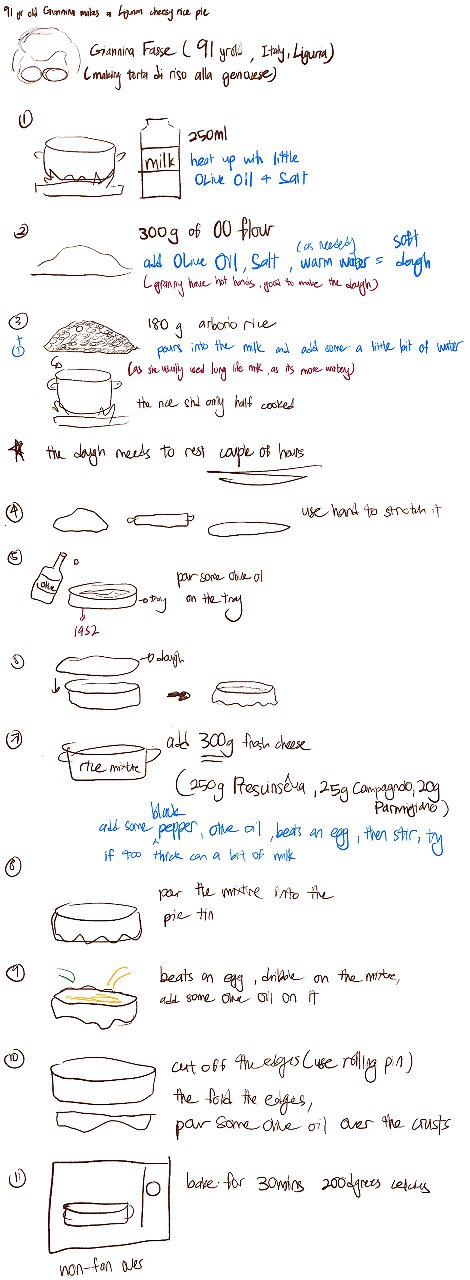 91 yr old Giannina makes a Ligurian cheesy rice pie
Giannina Fasse (91 yr old, Italy, Liguria)
(making torta di riso alla genovese)
①
milk
250ml
heat up with little
OLive Oil + Salt
②
300g of 00 flour
(as needed)
add OLive OIL, Salt, warm water = soft dough
(granny have hot hands, good to make the dough)
③
+
①
180 g arborio rice
pours into the milk and add some a little bit of water
(as she usually used long life milk, as its more watery)
the rice shd only half cooked
the dough needs to rest couple of hours
④
use hand to stretch it
⑤
Olive
tray
1952
pour some olive oil
on the tray
6
dough
⑦
rice mixture
add 300g fresh cheese
(250g Presinsêua, 25g Campagnolo, 20g
Parmigiano)
black
add some pepper, olive oil, beats an egg, then stir, try
if too thick can a bit of milk
⑧
pour the mixture into the
pie tin
⑨
beats an egg, dribble on the mixture,
add some olive oil on it
⑩
cut off the edges (use rolling pin)
the fold the edges,
pour some olive oil over the crusts
⑪
bake for 30mins 200dgrees celcius
non-fan oven